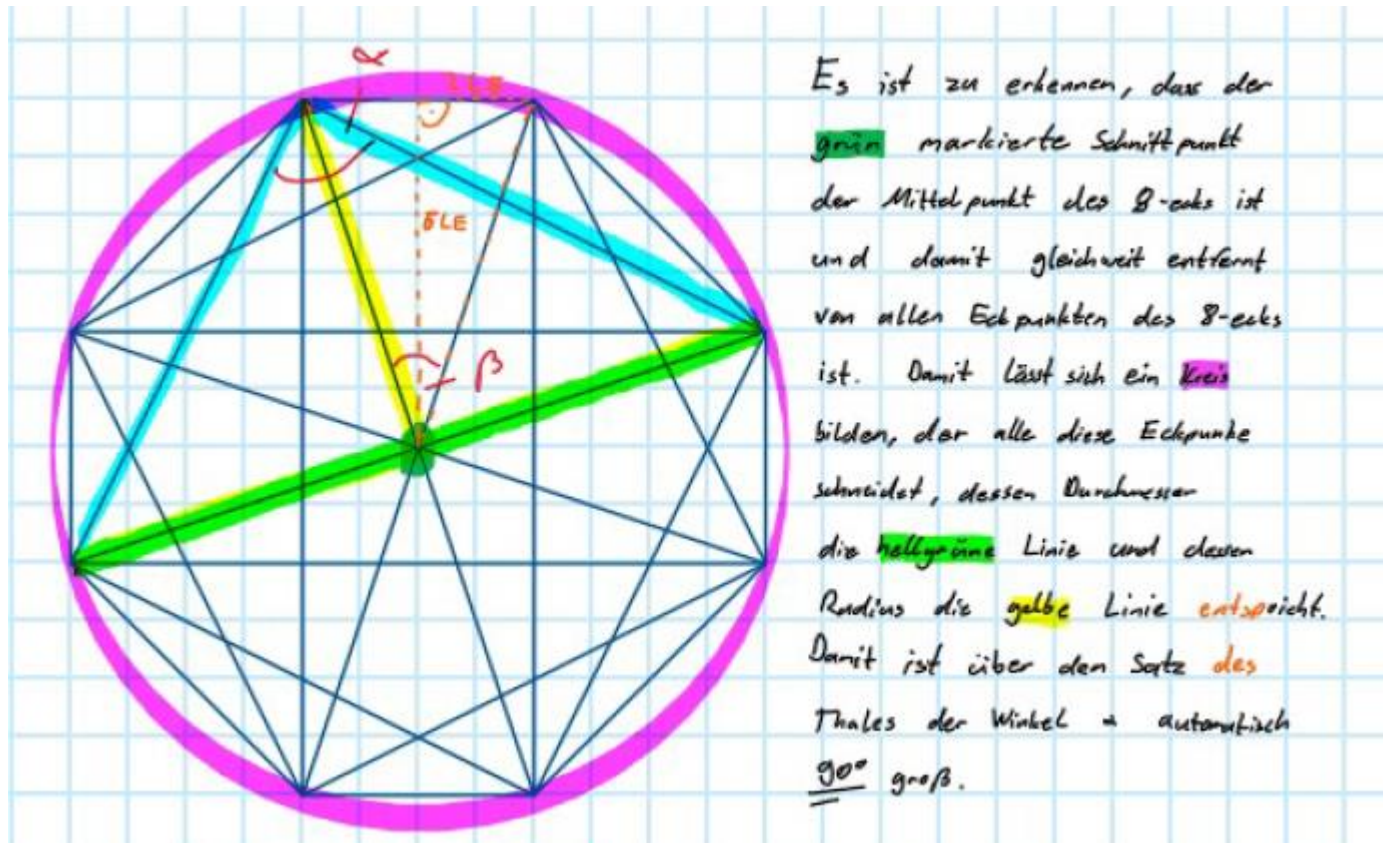 α
β
Es ist zu erkennen, dass der
grün markierte Schnittpunkt
der Mittelpunkt des 8-ecks ist
und damit gleichweit entfernt
von allen Eckpunkten des 8-ecks
ist. Damit lässt sich ein Kreis
bilden, der alle diese Eckpunke
schneidet, dessen Durchmesser
die hellgrüne Linie und dessen
Radius die gelbe Linie entspricht.
Damit ist über den Satz des
Thales der Winkel α automatisch
90° groß.